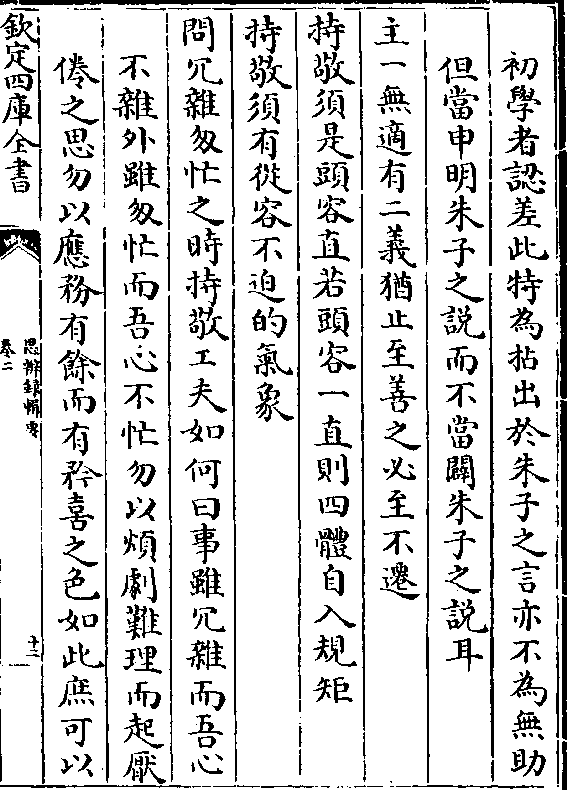 初學者認差此特為拈出於朱子之言亦不為無助
但當申明朱子之說而不當闢朱子之說耳
主一無適有二義猶止至善之必至不遷
持敬須是頭容直若頭容一直則四體自入規矩
持敬須有從容不迫的氣象
問冗雜匆忙之時持敬工夫如何曰事雖冗雜而吾心
不雜外雖匆忙而吾心不忙勿以煩劇難理而起厭
倦之思勿以應務有餘而有矜喜之色如此庶可以
欽定四庫全書
思辨錄輯要
卷二
十二